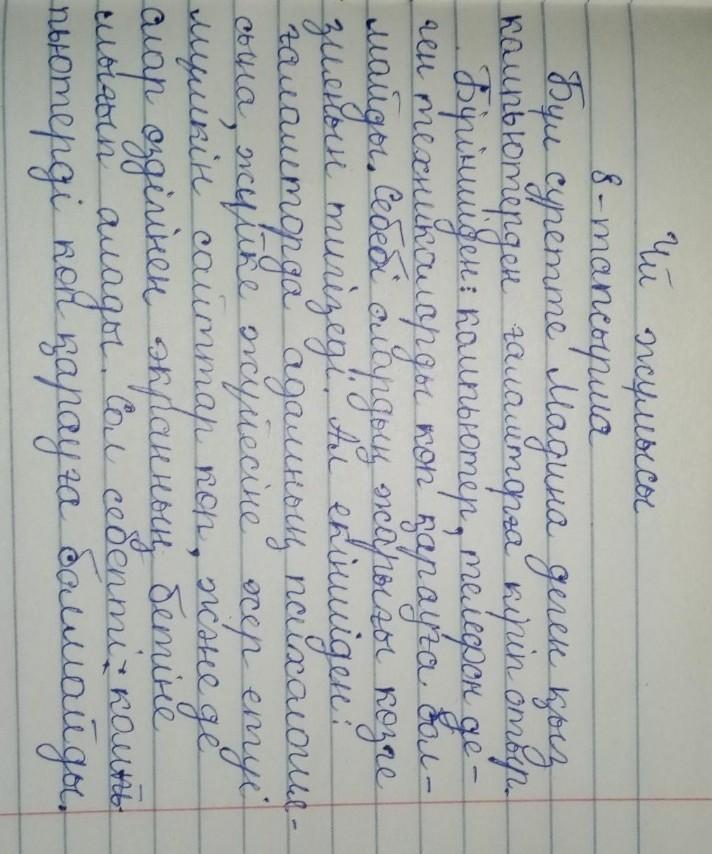 Үй жұмысы
8-тапсырма
Бұл суретте Мадина деген қыз
компьютерден ғаламторға кіріп отыр.
Біріншіден: компьютер, телефон де-
ген техникаларды көп қарауға бол-
майды. Себебі олардың жарығы көзге
зиенын тигізеді. Ал екіншіден:
ғаламторда адамның психология-
сына, жүйке жүйесіне әсер етуі
мүмкін сайттар көп, және де
олар өздігінен экранның бетіне
шығып алады. Сол себепті: компь-
пьютерді көп қарауға болмайды.